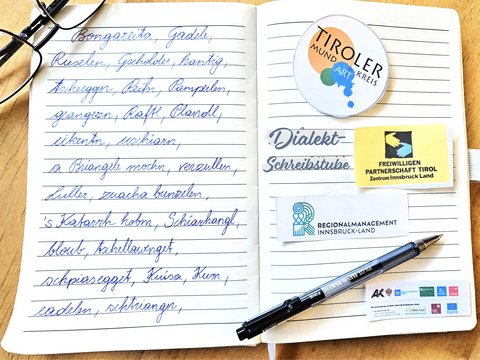 Bongareita, Gadele,
Ruselen, Gscholder, hantig,
Reifn, Pamperlen,
giangezn, Raftl, Plandl,
eikentn, uschiarn,
a Briangele mochn, verzullen,
Luller, zuacha bunzelen,
's Katarrh hobm, Schianhangl,
bloub,
schpiasegget, Kuisa, Kwn,
eadelen, schtuangn,
TIROLER
MUND
ART
KREIS
Dialekt-
Schreibstube
FREIWILLIGEN
PARTNERSCHAFT TIROL
Zentrum Innsbruck Land
REGIONALMANAGEMENT
INNSBRUCK-LAND
AK